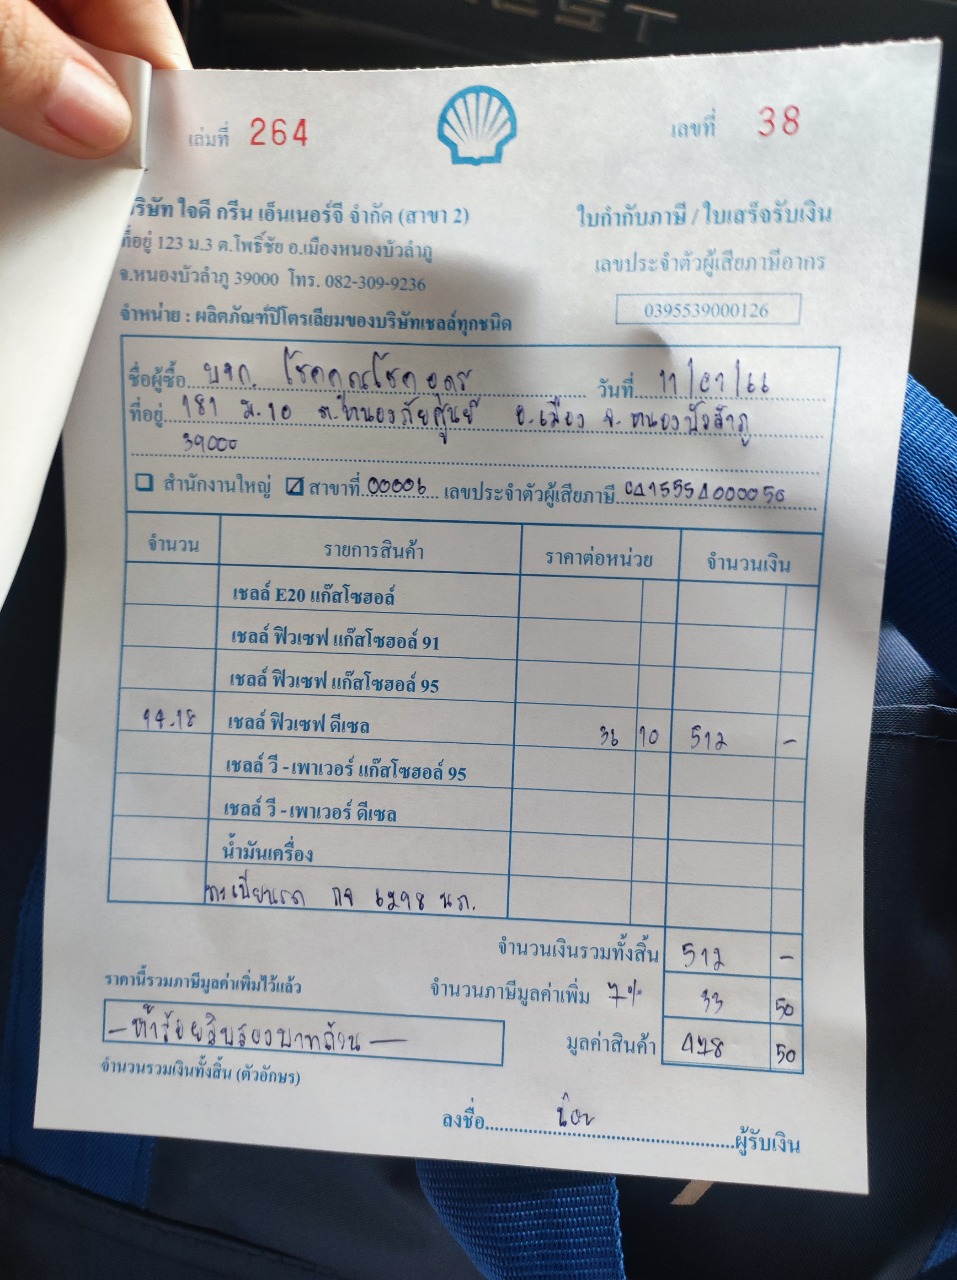 เล่มที่ 264
เลขที่ 38
บริษัท ใจดี กรีน เอ็นเนอร์จี จำกัด (สาขา 2)
ใบกำกับภาษี / ใบเสร็จรับเงิน
ที่อยู่ 123 ม.3 ต.โพธิ์ชัย อ.เมืองหนองบัวลำภู
เลขประจำตัวผู้เสียภาษีอากร
จ.หนองบัวลำภู 39000 โทร. 082-309-9236
0395539000126
จำหน่าย : ผลิตภัณฑ์ปิโตรเลียมของบริษัทเชลล์ทุกชนิด
ชื่อผู้ซื้อ บจก. โชคคูณโชคอุดร วันที่ 11/01/66
ที่อยู่ 181 ม.10 ต.หนองภัยศูนย์ อ.เมือง จ.หนองบัวลำภู
39000
สำนักงานใหญ่ ☑ สาขาที่ 00006 เลขประจำตัวผู้เสียภาษี 0415554000056
จำนวน รายการสินค้า ราคาต่อหน่วย จำนวนเงิน
เชลล์ E20 แก๊สโซฮอล์
เชลล์ ฟิวเซฟ แก๊สโซฮอล์ 91
เชลล์ ฟิวเซฟ แก๊สโซฮอล์ 95
14.18 เชลล์ ฟิวเซฟ ดีเซล 36 10 512 -
เชลล์ วี - เพาเวอร์ แก๊สโซฮอล์ 95
เชลล์ วี - เพาเวอร์ ดีเซล
น้ำมันเครื่อง
ทะเบียนรถ กจ 6298 นภ.
จำนวนเงินรวมทั้งสิ้น 512 -
ราคานี้รวมภาษีมูลค่าเพิ่มไว้แล้ว
จำนวนภาษีมูลค่าเพิ่ม 7% 33 50
- ห้าร้อยสิบสองบาทถ้วน -
มูลค่าสินค้า 478 50
จำนวนรวมเงินทั้งสิ้น (ตัวอักษร)
ลงชื่อ ผู้รับเงิน